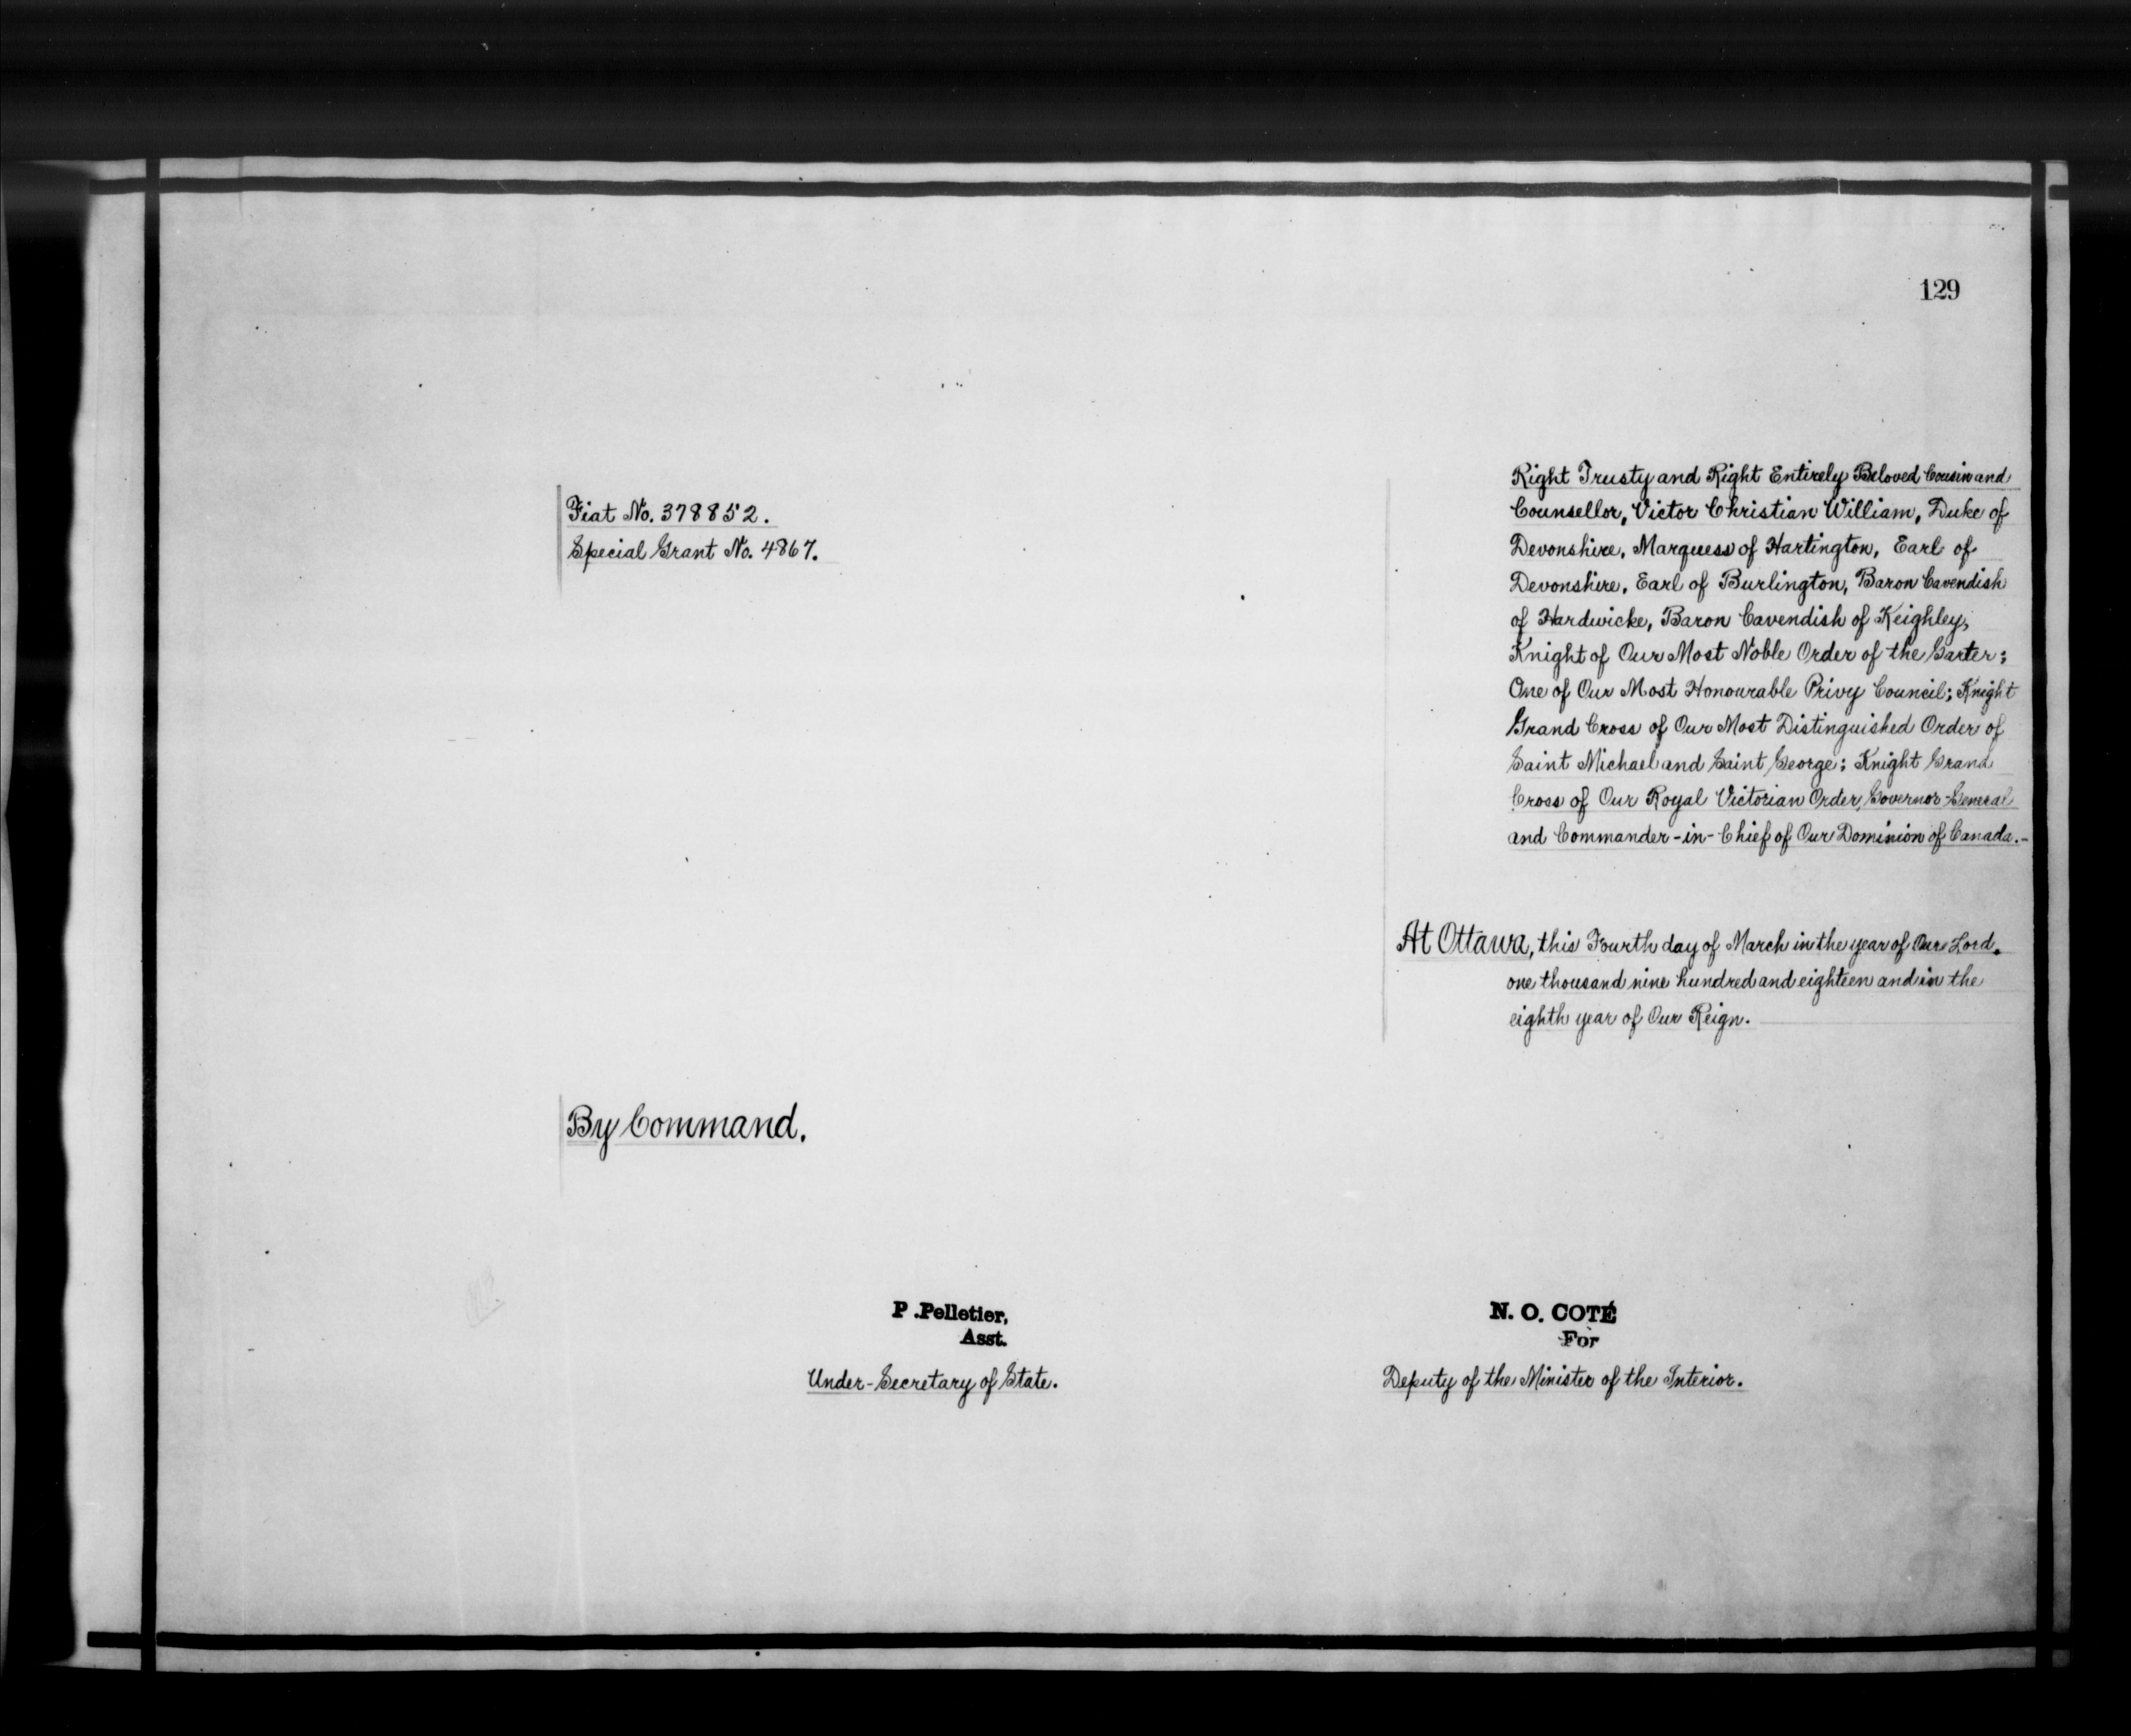 129
Fiat No. 378852.
Special Grant No. 4867.
Right Trusty and Right Entirely Beloved Cousin and
Counsellor, Victor Christian William, Duke of
Devonshire, Marquess of Hartington, Earl of
Devonshire, Earl of Burlington, Baron Cavendish
of Hardwicke, Baron Cavendish of Keighley,
Knight of Our Most Noble Order of the Garter;
One of Our Most Honourable Privy Council; Knight
Grand Cross of Our Most Distinguished Order of
Saint Michael and Saint George; Knight Grand
Cross of Our Royal Victorian Order, Governor-General
and Commander-in-Chief of Our Dominion of Canada.-
At Ottawa, this Fourth day of March in the year of Our Lord.
one thousand nine hundred and eighteen and in the
eighth year of Our Reign.
By Command.
P. Pelletier,
Asst.
Under-Secretary of State.
N. O. COTÉ
For
Deputy of the Minister of the Interior.